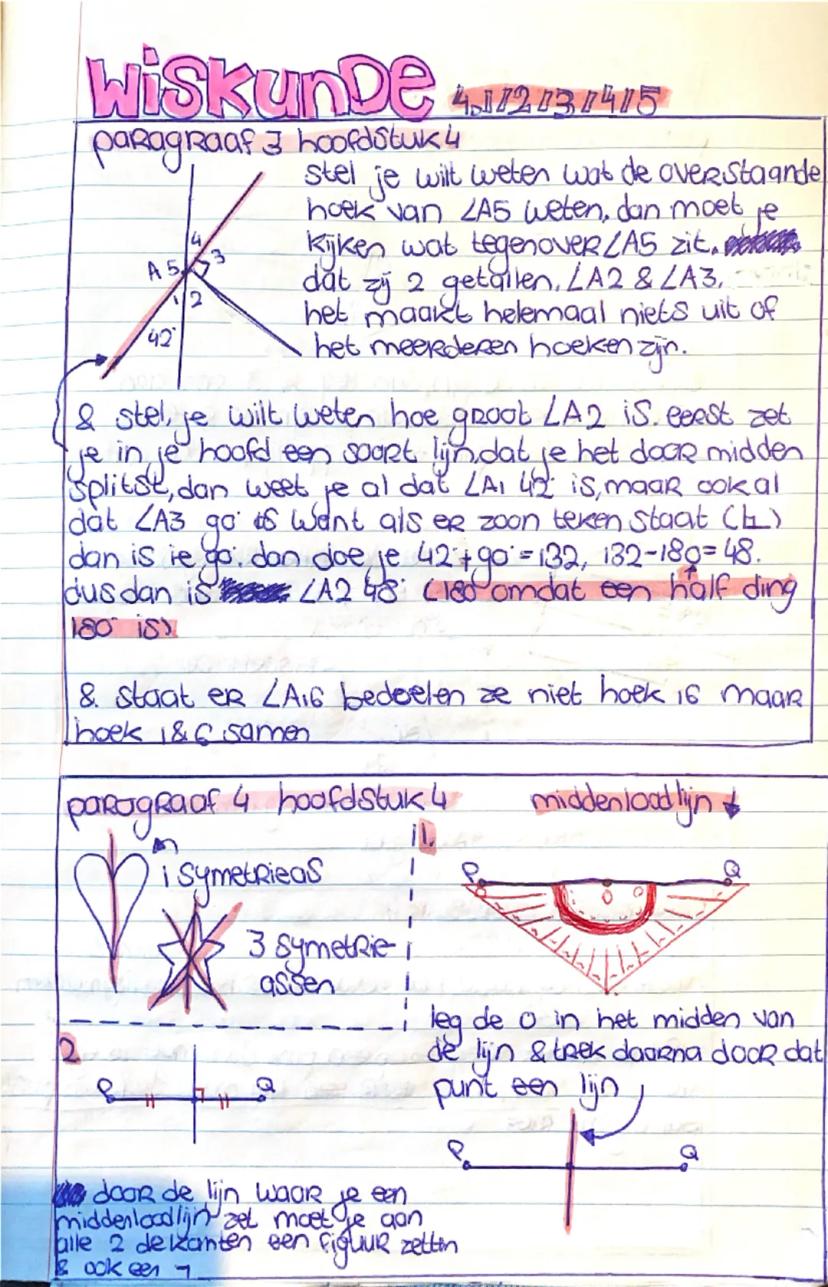 WiSKunDe 4.1/2/3/4/5
paragraaf 3 hoofdstuk 4
stel je wilt weten wat de overstaande
hoek van ∠A5 weten, dan moet je
kijken wat tegenover ∠A5 zit.
dat zij 2 getallen, ∠A2 & ∠A3.
het maakt helemaal niets uit of
het meerderen hoeken zijn.
4
A 5 3
1 2
42°
& stel, je wilt weten hoe groot ∠A2 is. eerst zet
je in je hoofd een soort lijn, dat je het door midden
splitst, dan weet je al dat ∠A1 42° is, maar ook al
dat ∠A3 90° is want als er zoon teken staat (⊾)
dan is ie 90°. dan doe je 42°+90°=132, 132-180=48.
dus dan is ∠A2 48° (180° omdat een half ding
180° is)
& staat er ∠A16 bedoelen ze niet hoek 16 maar
hoek 1 & 6 samen
paragraaf 4 hoofdstuk 4 middenloodlijn
1 symetrieas
3 symetrie-
assen
1.
P Q
0
leg de 0 in het midden van
de lijn & trek daarna door dat
punt een lijn
P Q
2
P Q
door de lijn waar je een
middenloodlijn zet moet je aan
alle 2 de kanten een figuur zetten
& ook een ¬